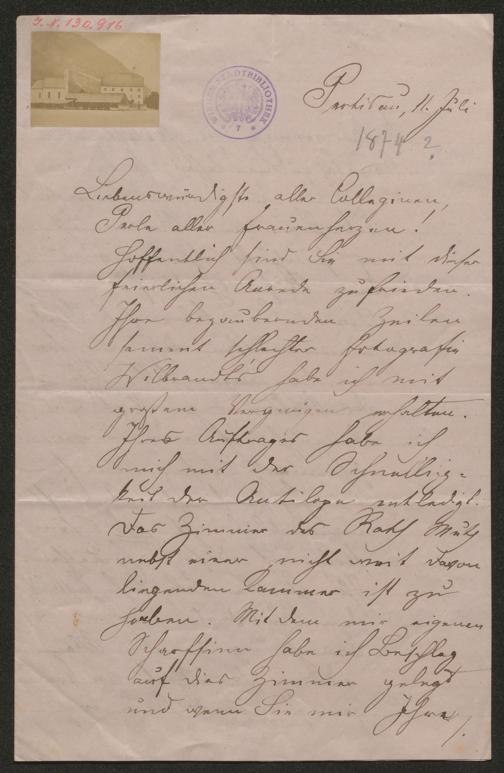 J.N. 130.916
WIENER STADTBIBLIOTHEK
* 7 *
Pertisau, 11. Juli
1874 ?
Liebenswürdigste aller Colleginen,
Perle aller Frauenherzen!
Hoffentlich sind Sie mit dieser
feierlichen Anrede zufrieden.
Ihre bezaubernden Zeilen
sammt schlechter Fotografie
Wilbrandts habe ich mit
großem Vergnügen erhalten.
Ihres Auftrages habe ich
mich mit der Schnellig=
keit der Antilope entledigt.
Das Zimmer des Rath
nebst einer nicht weit davon
liegenden Kammer ist zu
haben. Mit dem mir eigenen
Scharfsinn habe ich Beschlag
auf dies Zimmer gelegt
und wenn Sie mir Ihre